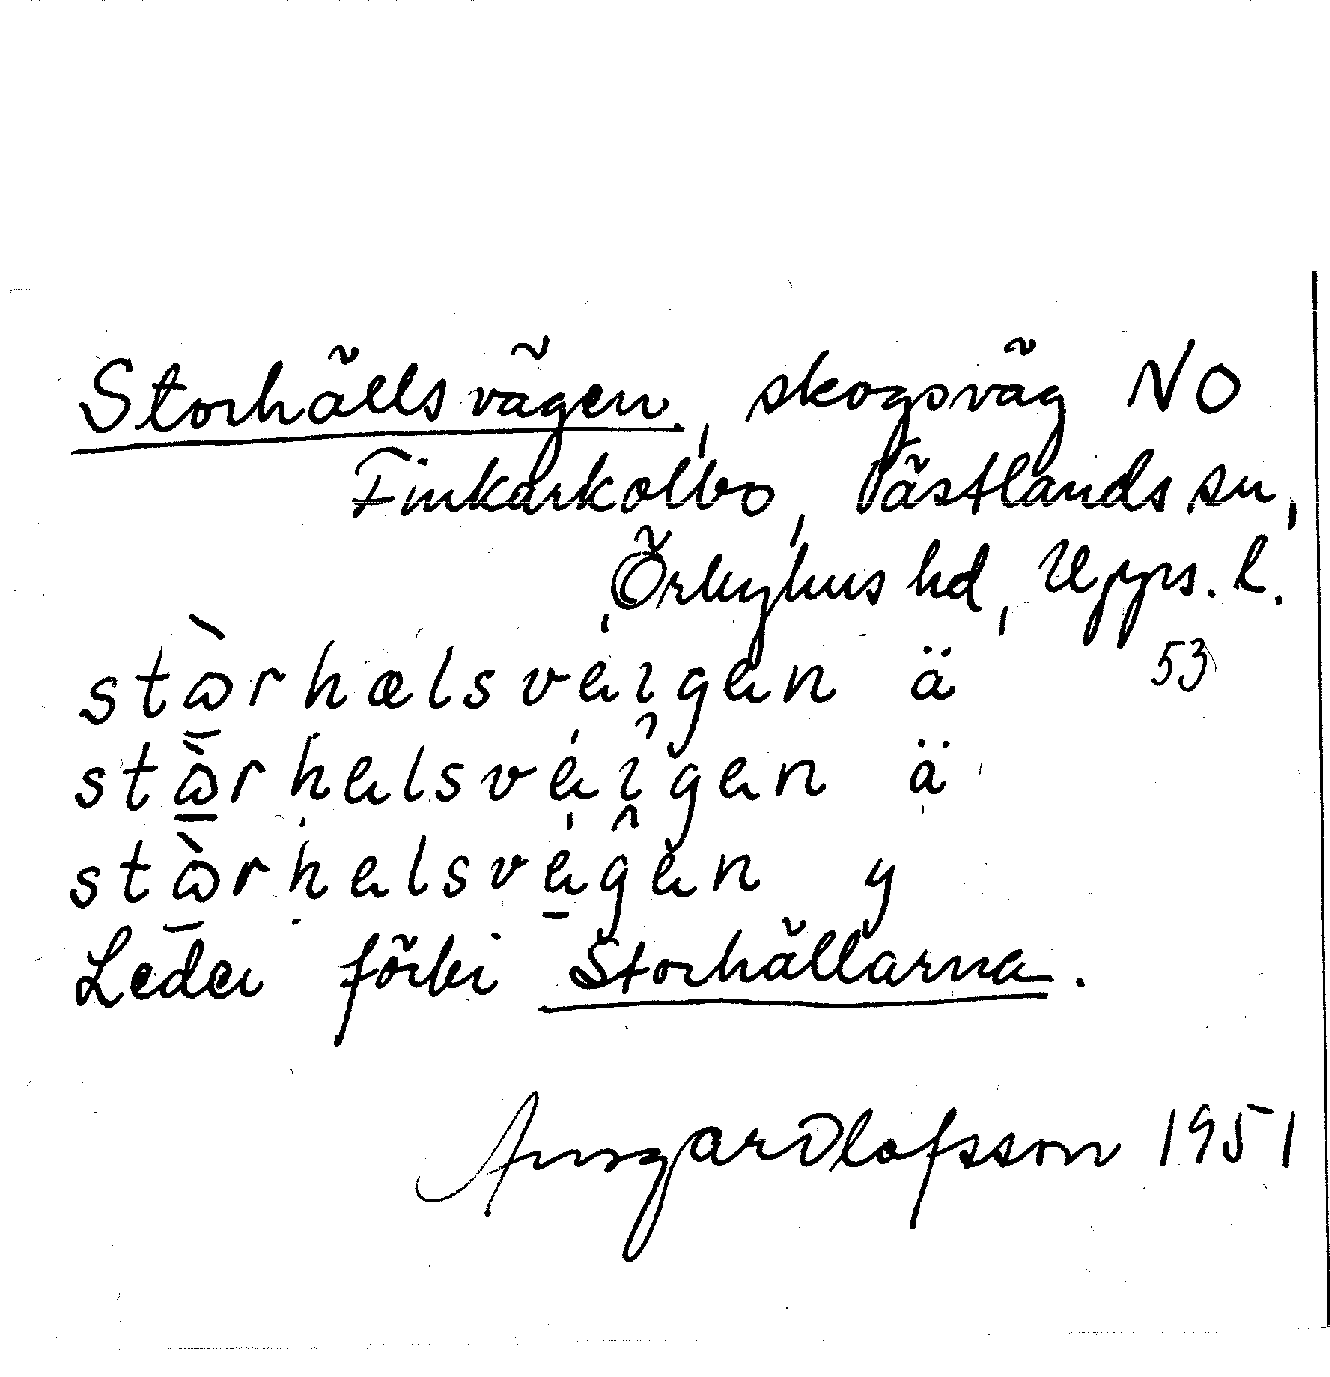 Storhällsvägen, skogsväg NO
Finkarkolbo, Västlands sn,
Örbyhus hd, Upps. l.
stὼ̱rhælsvéıgen ä 53
stὼ̱rhelsvéı̂gen ä
stὼ̱rhelsvé̱ĝen y
Leder förbi Storhällarna.
Ansgar Olofsson 1951